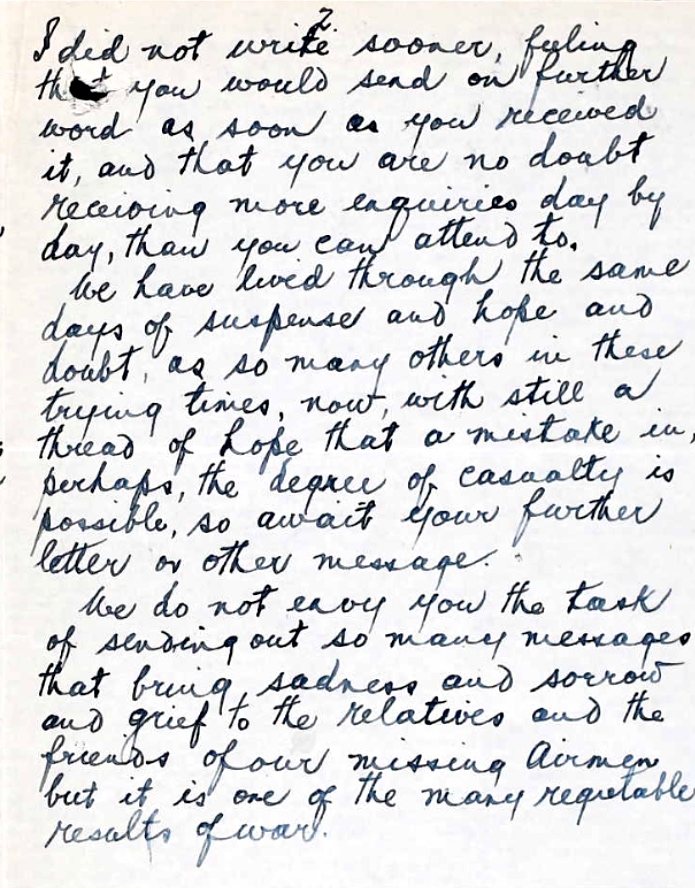 2
I did not write sooner, feeling
that you would send on further
word as soon as you received
it, and that you are no doubt
receiving more enquiries day by
day, than you can attend to.
We have lived through the same
days of suspense and hope and
doubt, as so many others in these
trying times, now, with still a
thread of hope that a mistake in,
perhaps, the degree of casualty is
possible, so await your further
letter or other message.
We do not envy you the task
of sending out so many messages
that bring sadness and sorrow
and grief to the relatives and the
friends of our missing Airmen
but it is one of the many regretable
results of war.